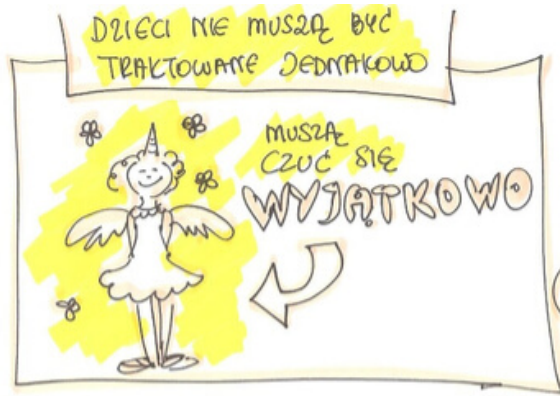 DZIECI NIE MUSZĄ BYĆ
TRAKTOWANE JEDNAKOWO
MUSZĄ
CZUĆ SIĘ
WYJĄTKOWO